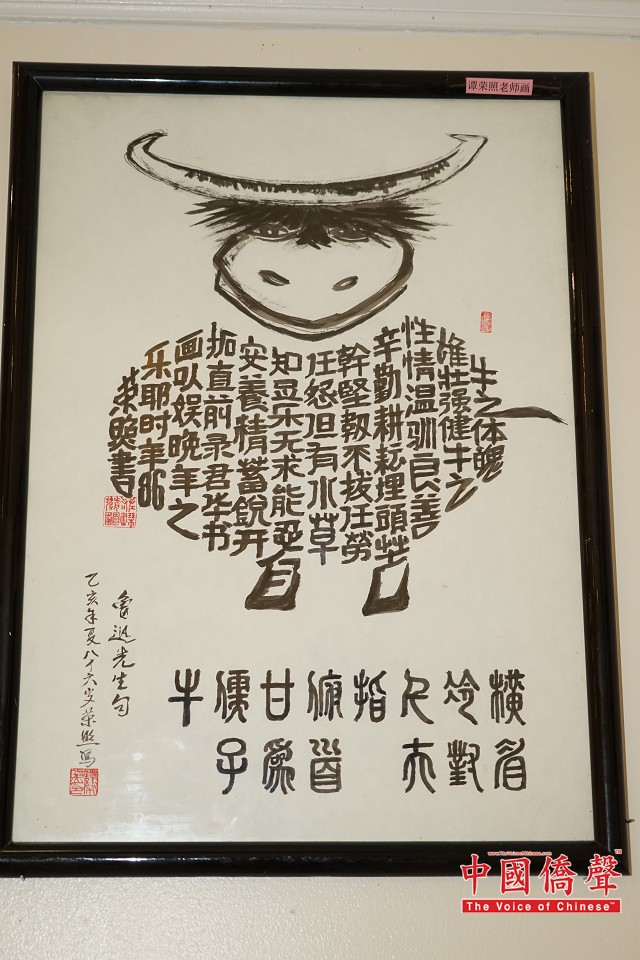 谭荣照老师画
牛之体魄
雄壮强健牛之
性情温驯良善
辛勤耕耘埋頭苦
幹堅韧不拔任勞
任怨但有水草
知足乐无求能
安養精蓄銳开
拓直前录君毕书
画以娱晚年之
乐耶时年
荣照書
橫眉
冷對
千夫
指
俯首
甘為
孺子
牛
魯迅先生句
乙亥年夏八十六岁荣照写
www.thevoiceofchinese.com
中國僑聲™
The Voice of Chinese™